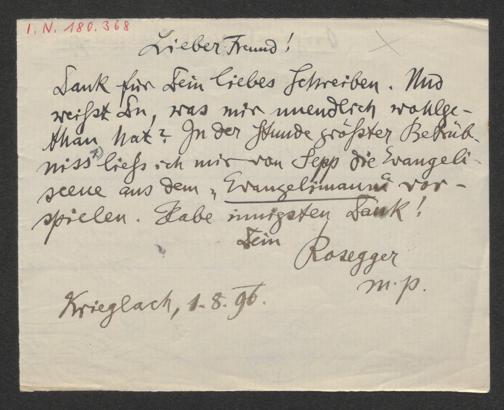 I.N. 180.368
Lieber Freund!
Dank für Dein liebes Schreiben. Und
weißt Du, was mir unendlich wohlge-
than hat? In der Stunde größter Betrüb-
niss ließ ich mir von Sepp die Evangeli-
scene aus dem „Evangelimann“ vor-
spielen. Habe innigsten Dank!
Dein
Rosegger
m.p.
Krieglach, 1.8.96.